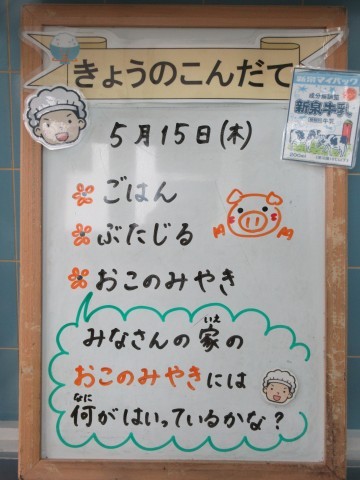 きょうのこんだて
新泉マイパック
成分無調整
新泉牛乳
5月15日(木)
ごはん
ぶたじる
おこのみやき
みなさんの家の
いえ
おこのみやきには
何がはいっているかな?
なに